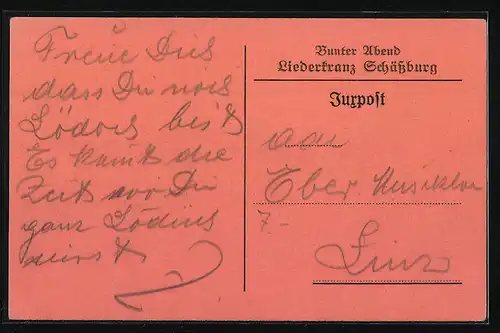 Freue Dich
dass Du noch
bist
Es kommt die
Zeit wo Du
ganz
wirst
Bunter Abend
Liederkranz Schäßburg
Juxpost
an
Ober Musiklon
7.-
Linz